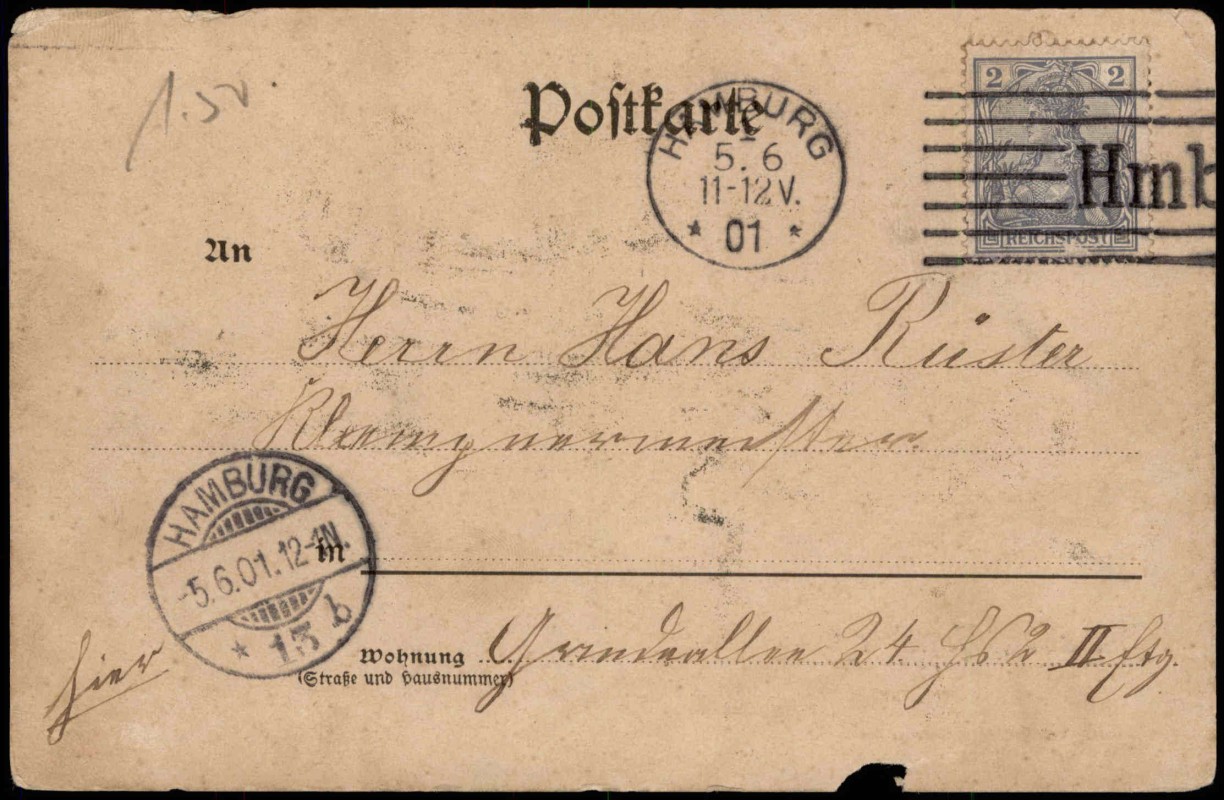 1.50
Postkarte
HAMBURG
1
5. 6
11-12V.
* 01 *
2 2
REICHSPOST
Hmb
An
Herrn Hans Rüster
Klempnermeister
HAMBURG
-5.6.01.12-1N.
* 13 b
in
hier
Wohnung Grindeallee 24 Hs 2 II Etg.
(Straße und Hausnummer)